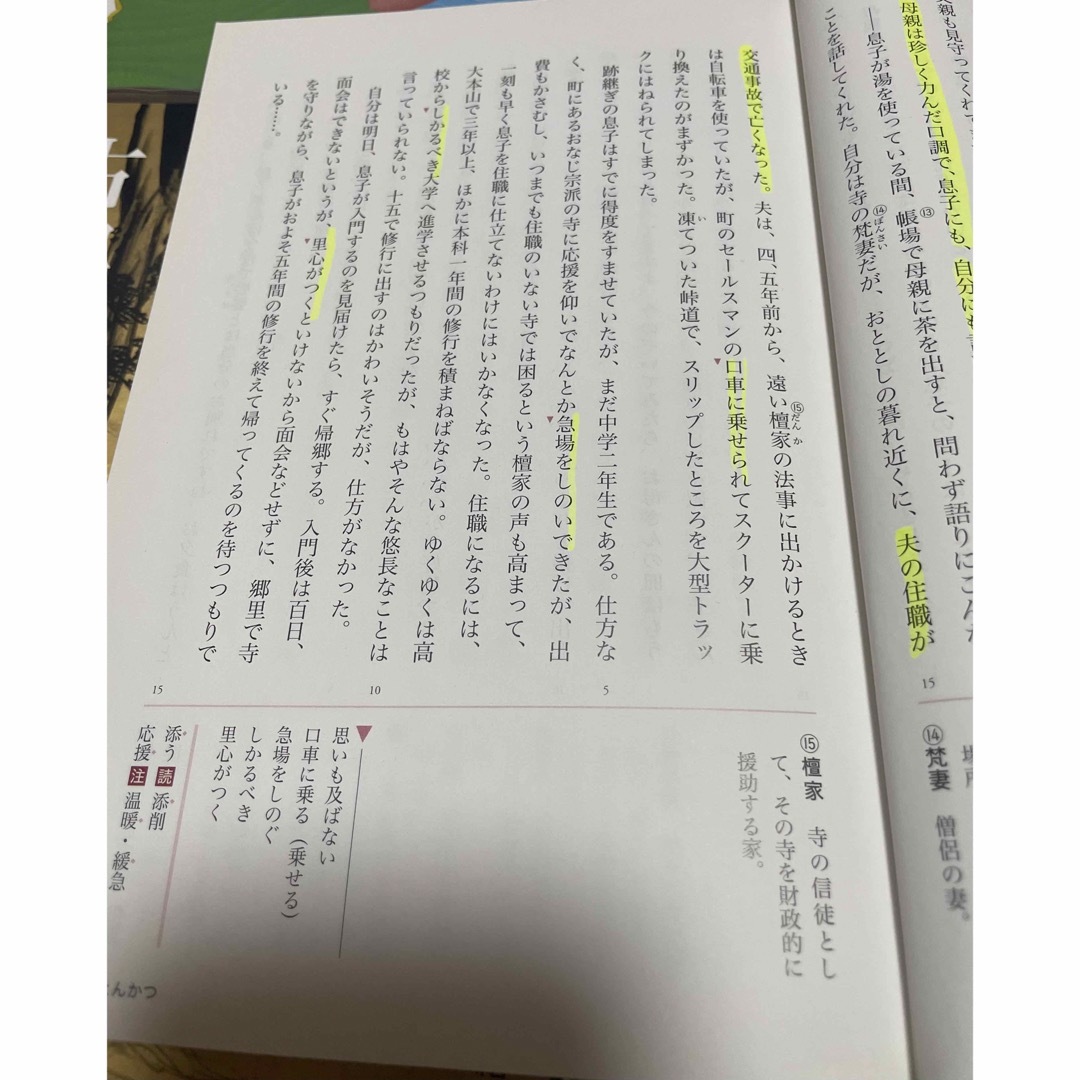 父親も見守ってくれ
母親は珍しく力んだ口調で、息子にも、自分にも言
――息子が湯を使っている間、⑬帳場で母親に茶を出すと、問わず語りにこん
ことを話してくれた。自分は寺の⑭梵妻だが、おととしの暮れ近くに、夫の住職が
ぼんさい
15
⑭梵妻 僧侶の妻。
交通事故で亡くなった。夫は、四、五年前から、遠い⑮檀家の法事に出かけるとき
だんか
は自転車を使っていたが、町のセールスマンの口車に乗せられてスクーターに乗
り換えたのがまずかった。凍てついた峠道で、スリップしたところを大型トラッ
い
クにはねられてしまった。
跡継ぎの息子はすでに得度をすませていたが、まだ中学二年生である。仕方な
5
く、町にあるおなじ宗派の寺に応援を仰いでなんとか急場をしのいできたが、出
費もかさむし、いつまでも住職のいない寺では困るという檀家の声も高まって、
一刻も早く息子を住職に仕立てないわけにはいかなくなった。住職になるには、
大本山で三年以上、ほかに本科一年間の修行を積まねばならない。ゆくゆくは高
校からしかるべき大学へ進学させるつもりだったが、もはやそんな悠長なことは
10
言っていられない。十五で修行に出すのはかわいそうだが、仕方がなかった。
自分は明日、息子が入門するのを見届けたら、すぐ帰郷する。入門後は百日、
面会はできないというが、里心がつくといけないから面会などせずに、郷里で寺
を守りながら、息子がおよそ五年間の修行を終えて帰ってくるのを待つつもりで
いる……。
15
⑮檀家 寺の信徒とし
て、その寺を財政的に
援助する家。
思いも及ばない
口車に乗る（乗せる）
急場をしのぐ
しかるべき
里心がつく
添う 読 添削
応援 注 温暖・緩急
とんかつ